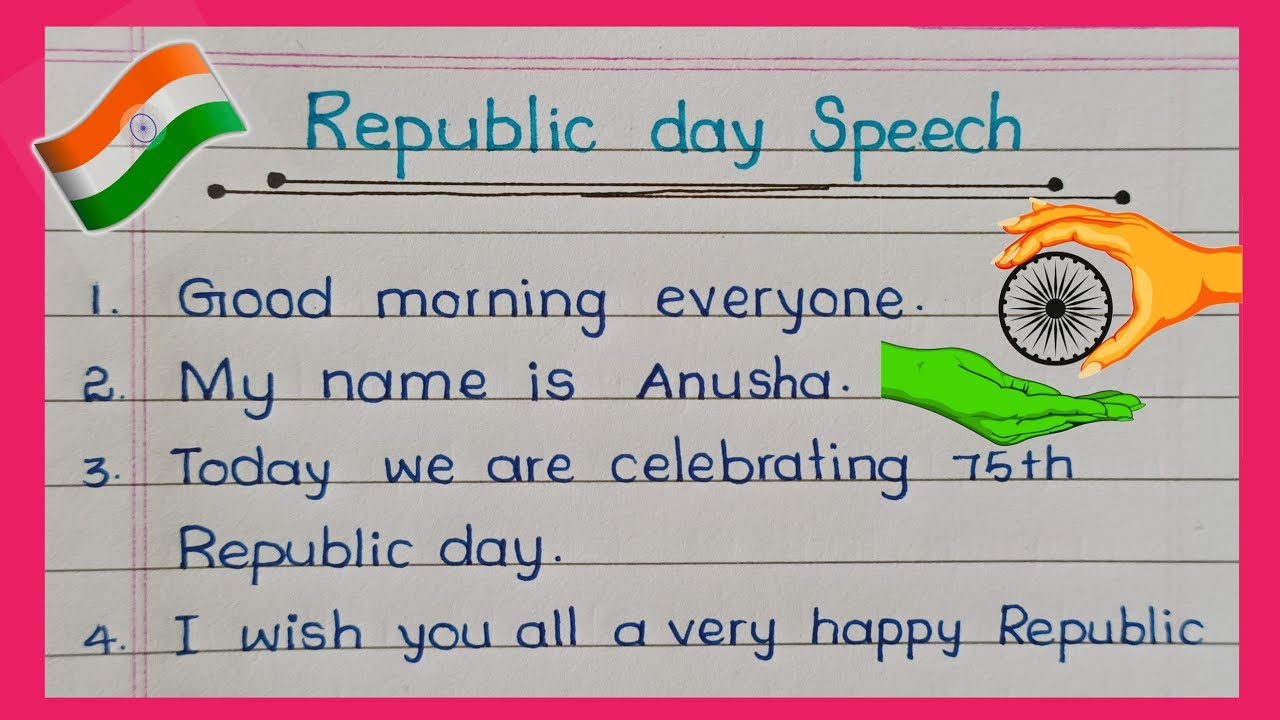 Republic day Speech
1. Good morning everyone.
2. My name is Anusha.
3. Today we are celebrating 75th
Republic day.
4. I wish you all a very happy Republic